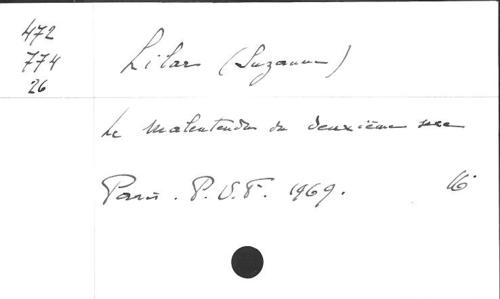 472
774
26
Lilar (Suzanne)
Le malentendu du deuxième sexe
Paris. P.U.F. 1969. 16°